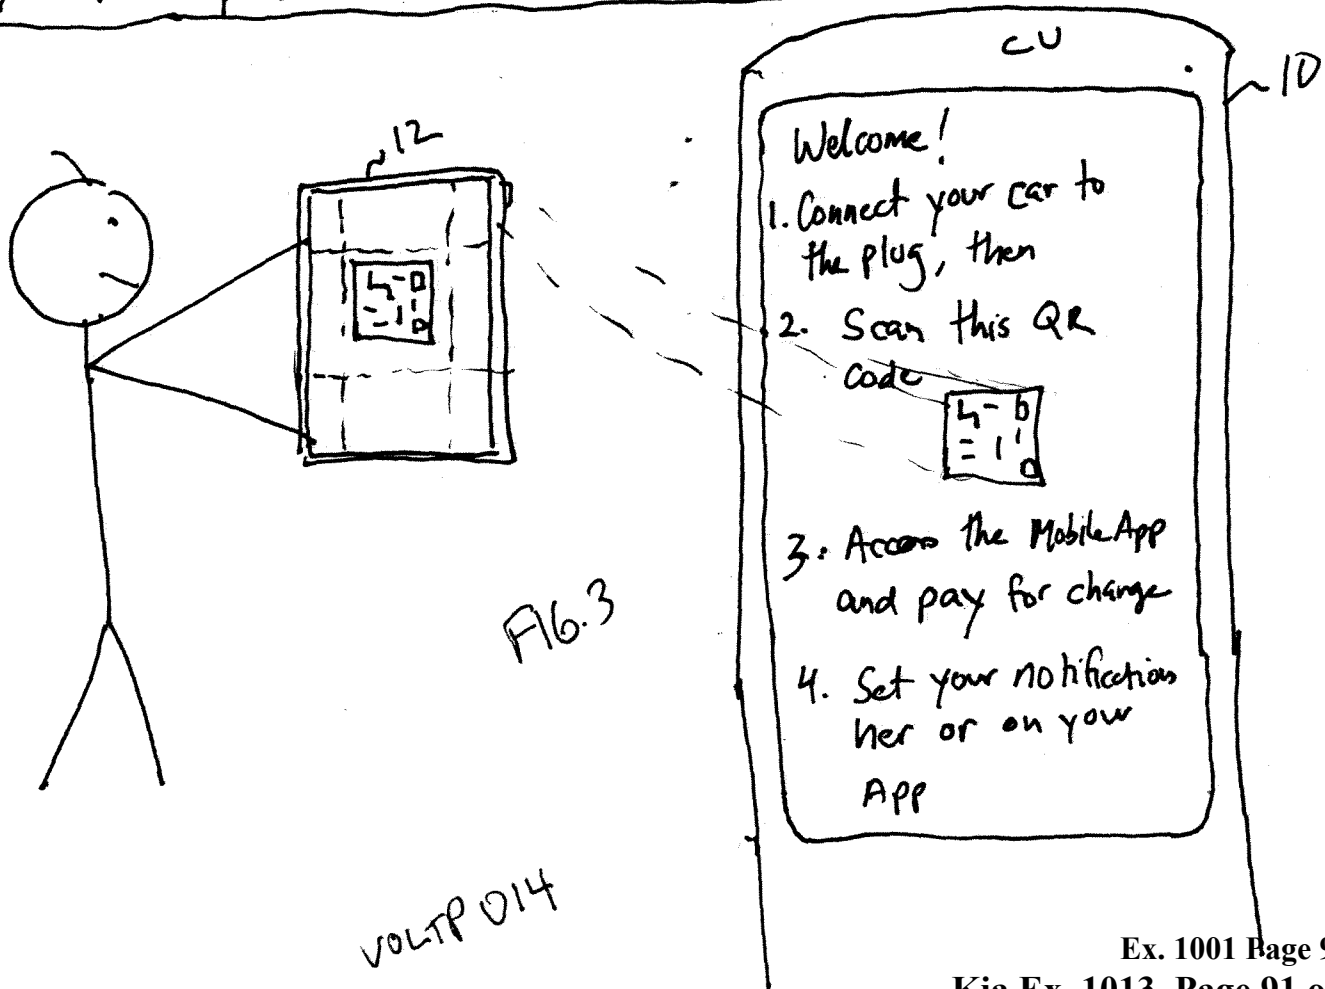 CU
10
12
Welcome!
1. Connect your car to
the plug, then
2. Scan this QR
code
3. Access the Mobile App
and pay for change
4. Set your notifications
her or on your
App
FIG. 3
VOLTP014
Ex. 1001 Page 9
Kia Ex. 1013, Page 91 o